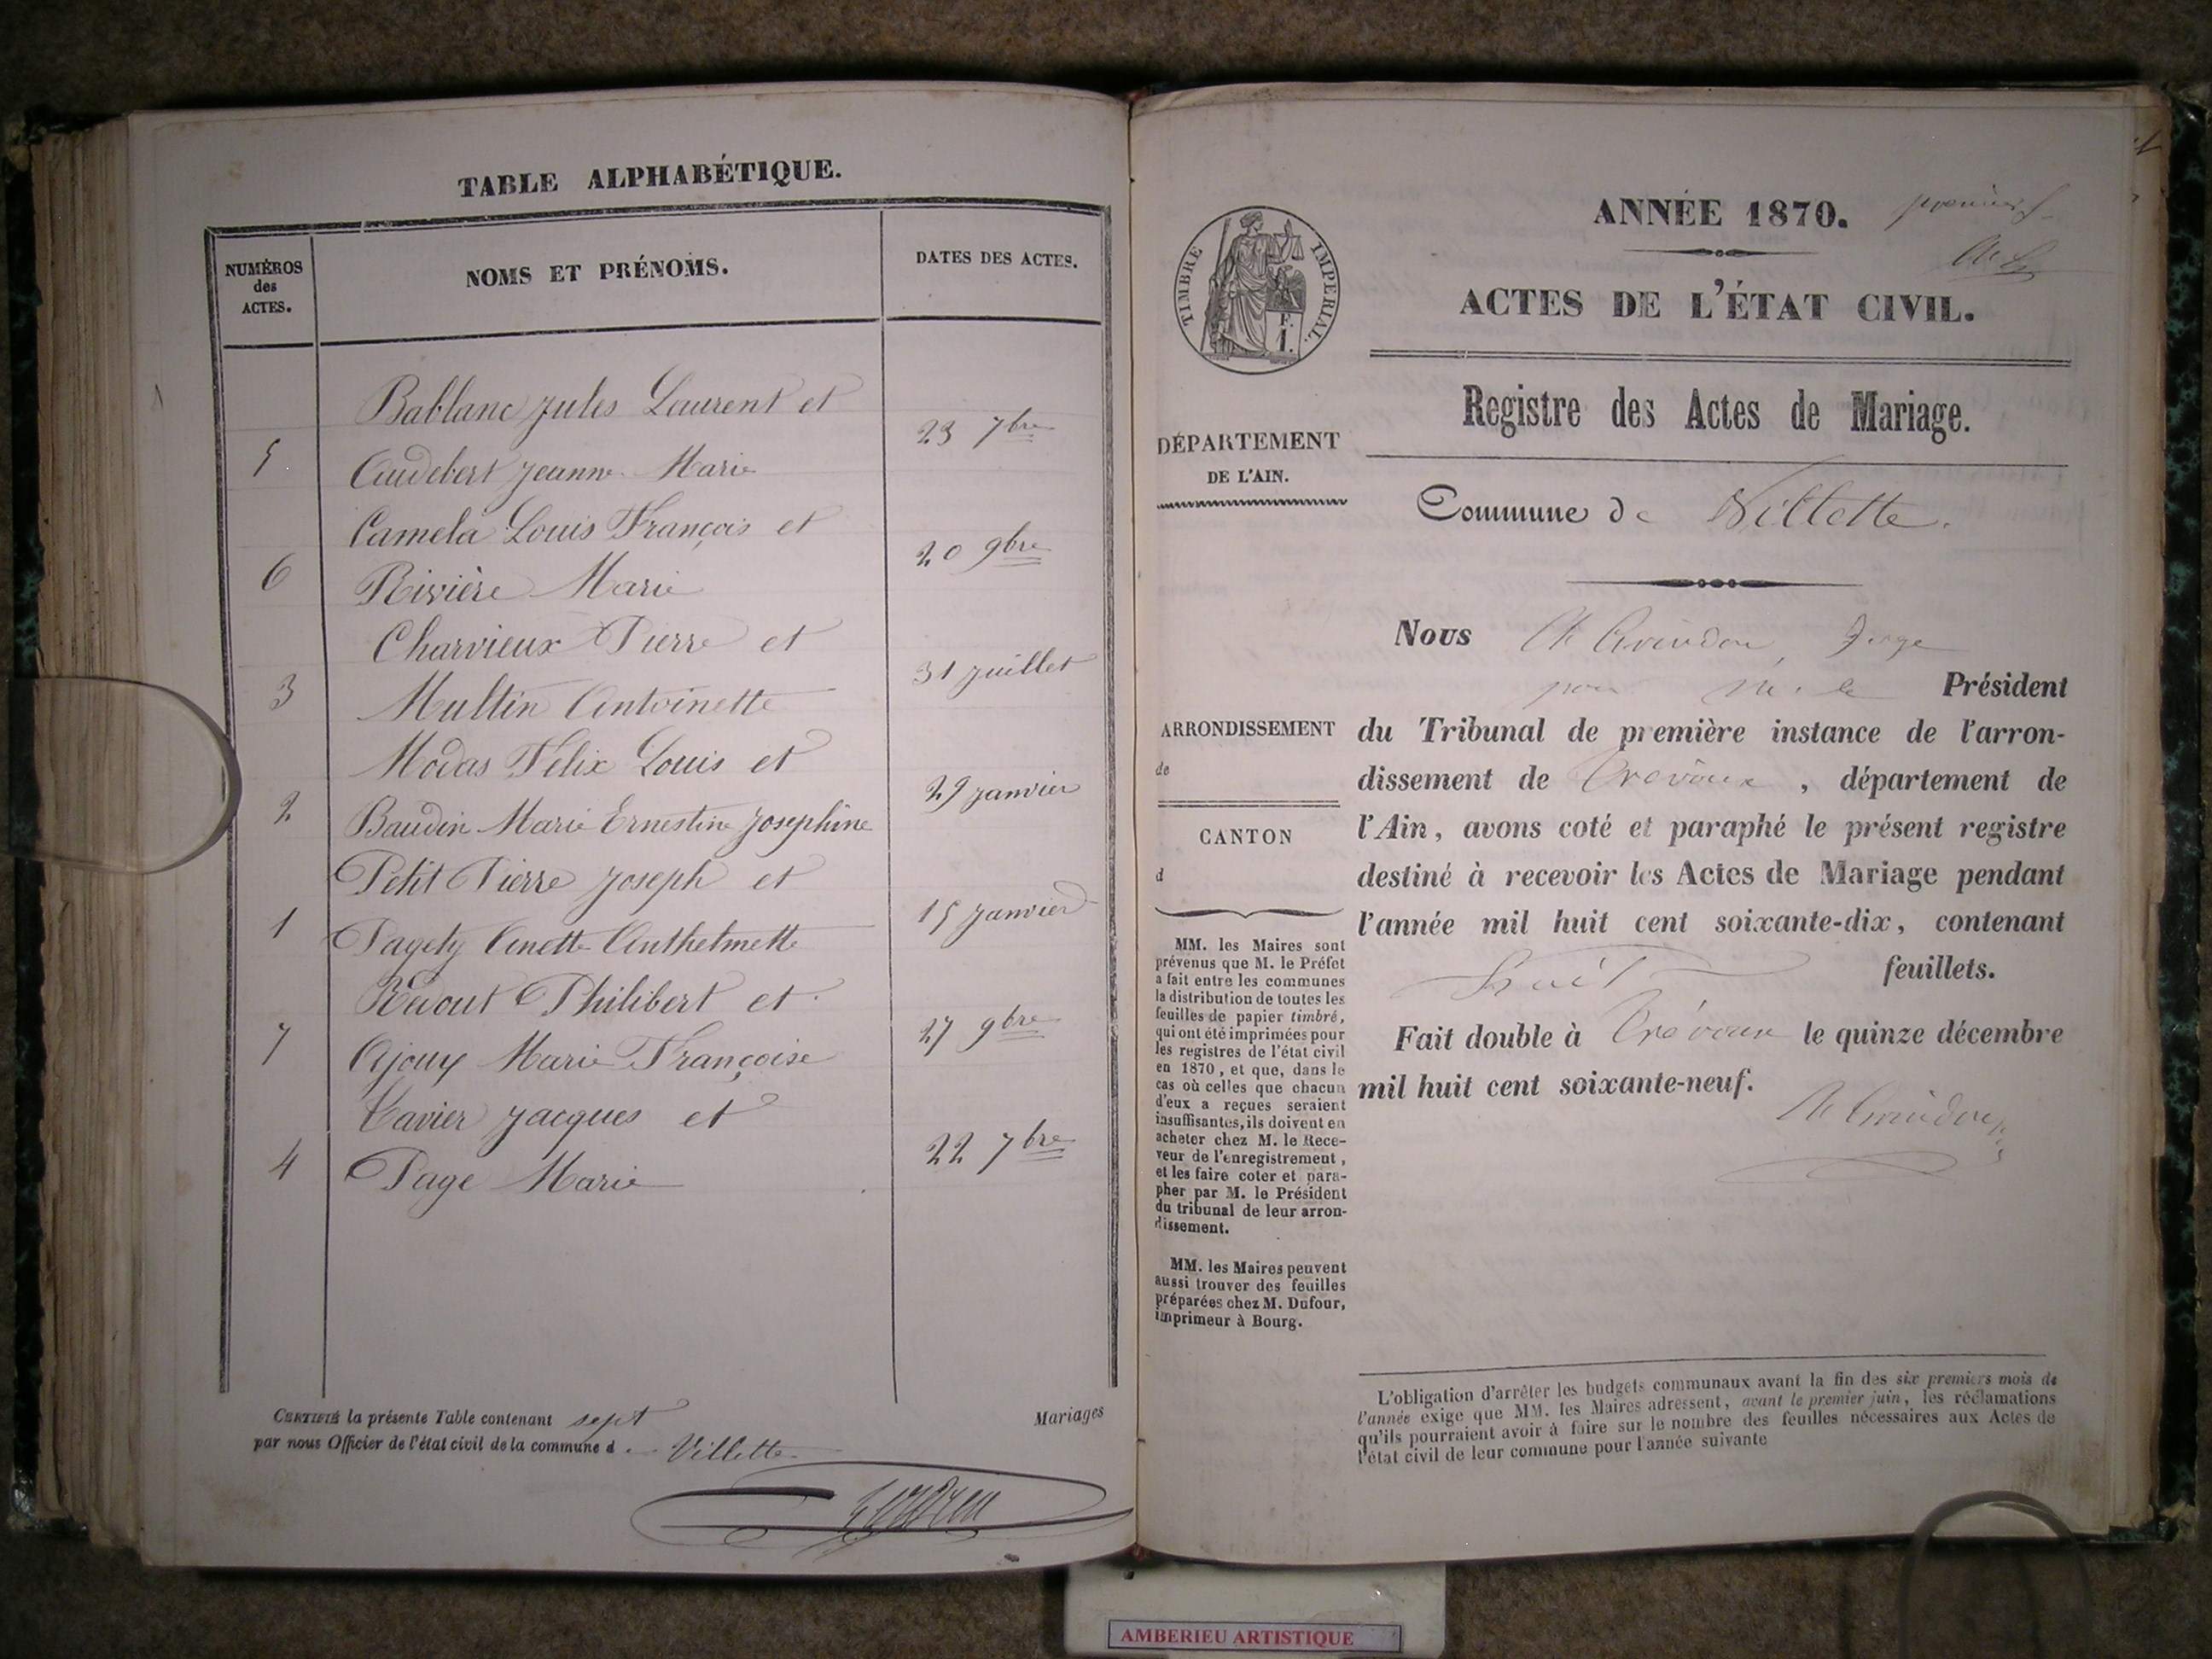 TABLE ALPHABÉTIQUE.
NUMÉROS des ACTES.
NOMS ET PRÉNOMS.
DATES DES ACTES.
Bablanc Jules Laurent et
23 7bre
5
Audebert Jeanne Marie
Camela Louis François et
20 9bre
6
Rivière Marie
Charvieux Pierre et
31 juillet
3
Multin Antoinette
Modas Félix Louis et
29 janvier
2
Baudin Marie Ernestine Josephine
Petit Pierre Joseph et
15 janvier
1
Pagety Anette Anthelmette
Philibert et
27 9bre
7
Ajouy Marie Françoise
Jacques et
22 7bre
4
Page Marie
CERTIFIÉ la présente Table contenant sept Mariages
par nous Officier de l'état civil de la commune d Villette
ANNÉE 1870.
premier f
ACTES DE L'ÉTAT CIVIL.
TIMBRE IMPERIAL.
Registre des Actes de Mariage.
DÉPARTEMENT
DE L'AIN.
Commune de Villette.
Nous Juge
pour M. le Président
ARRONDISSEMENT
de
du Tribunal de première instance de l'arron-
dissement de Trévoux, département de
l'Ain, avons coté et paraphé le présent registre
destiné à recevoir les Actes de Mariage pendant
l'année mil huit cent soixante-dix, contenant
huit feuillets.
Fait double à Trévoux le quinze décembre
mil huit cent soixante-neuf.
CANTON
d
MM. les Maires sont
prévenus que M. le Préfet
a fait entre les communes
la distribution de toutes les
feuilles de papier timbré,
qui ont été imprimées pour
les registres de l'état civil
en 1870, et que, dans le
cas où celles que chacun
d'eux a reçues seraient
insuffisantes, ils doivent en
acheter chez M. le Rece-
veur de l'enregistrement,
et les faire coter et para-
pher par M. le Président
du tribunal de leur arron-
dissement.
MM. les Maires peuvent
aussi trouver des feuilles
préparées chez M. Dufour,
imprimeur à Bourg.
L'obligation d'arrêter les budgets communaux avant la fin des six premiers mois de
l'année exige que MM. les Maires adressent, avant le premier juin, les réclamations
qu'ils pourraient avoir à faire sur le nombre des feuilles nécessaires aux Actes de
l'état civil de leur commune pour l'année suivante
AMBERIEU ARTISTIQUE